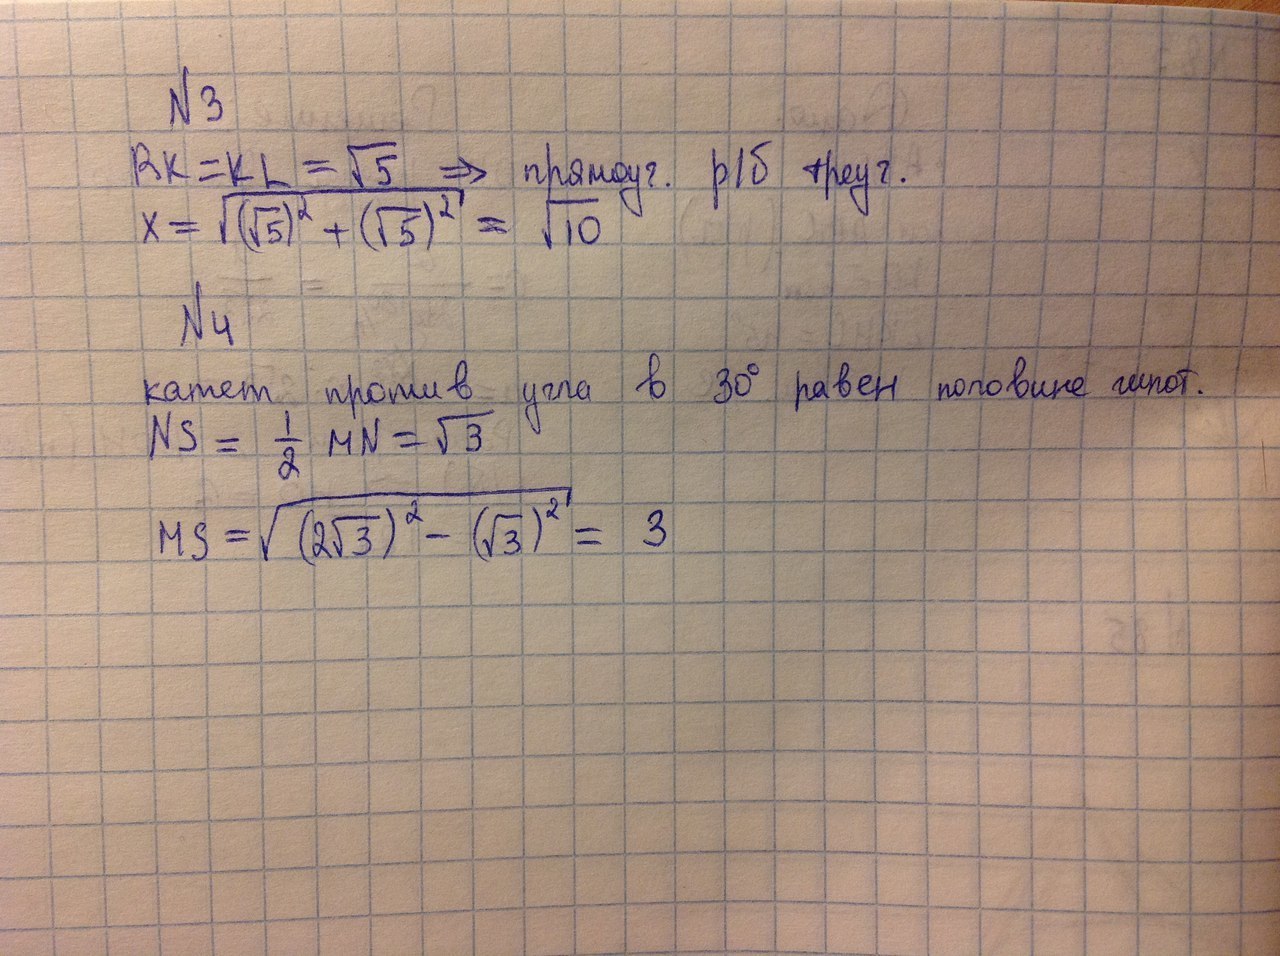 №3
RK = KL = √5 ⇒ прямоуг. р/б треуг.
x = √((√5)² + (√5)²) = √10
№4
катет против угла в 30° равен половине гипот.
NS = 1/2 MN = √3
MS = √((2√3)² − (√3)²) = 3